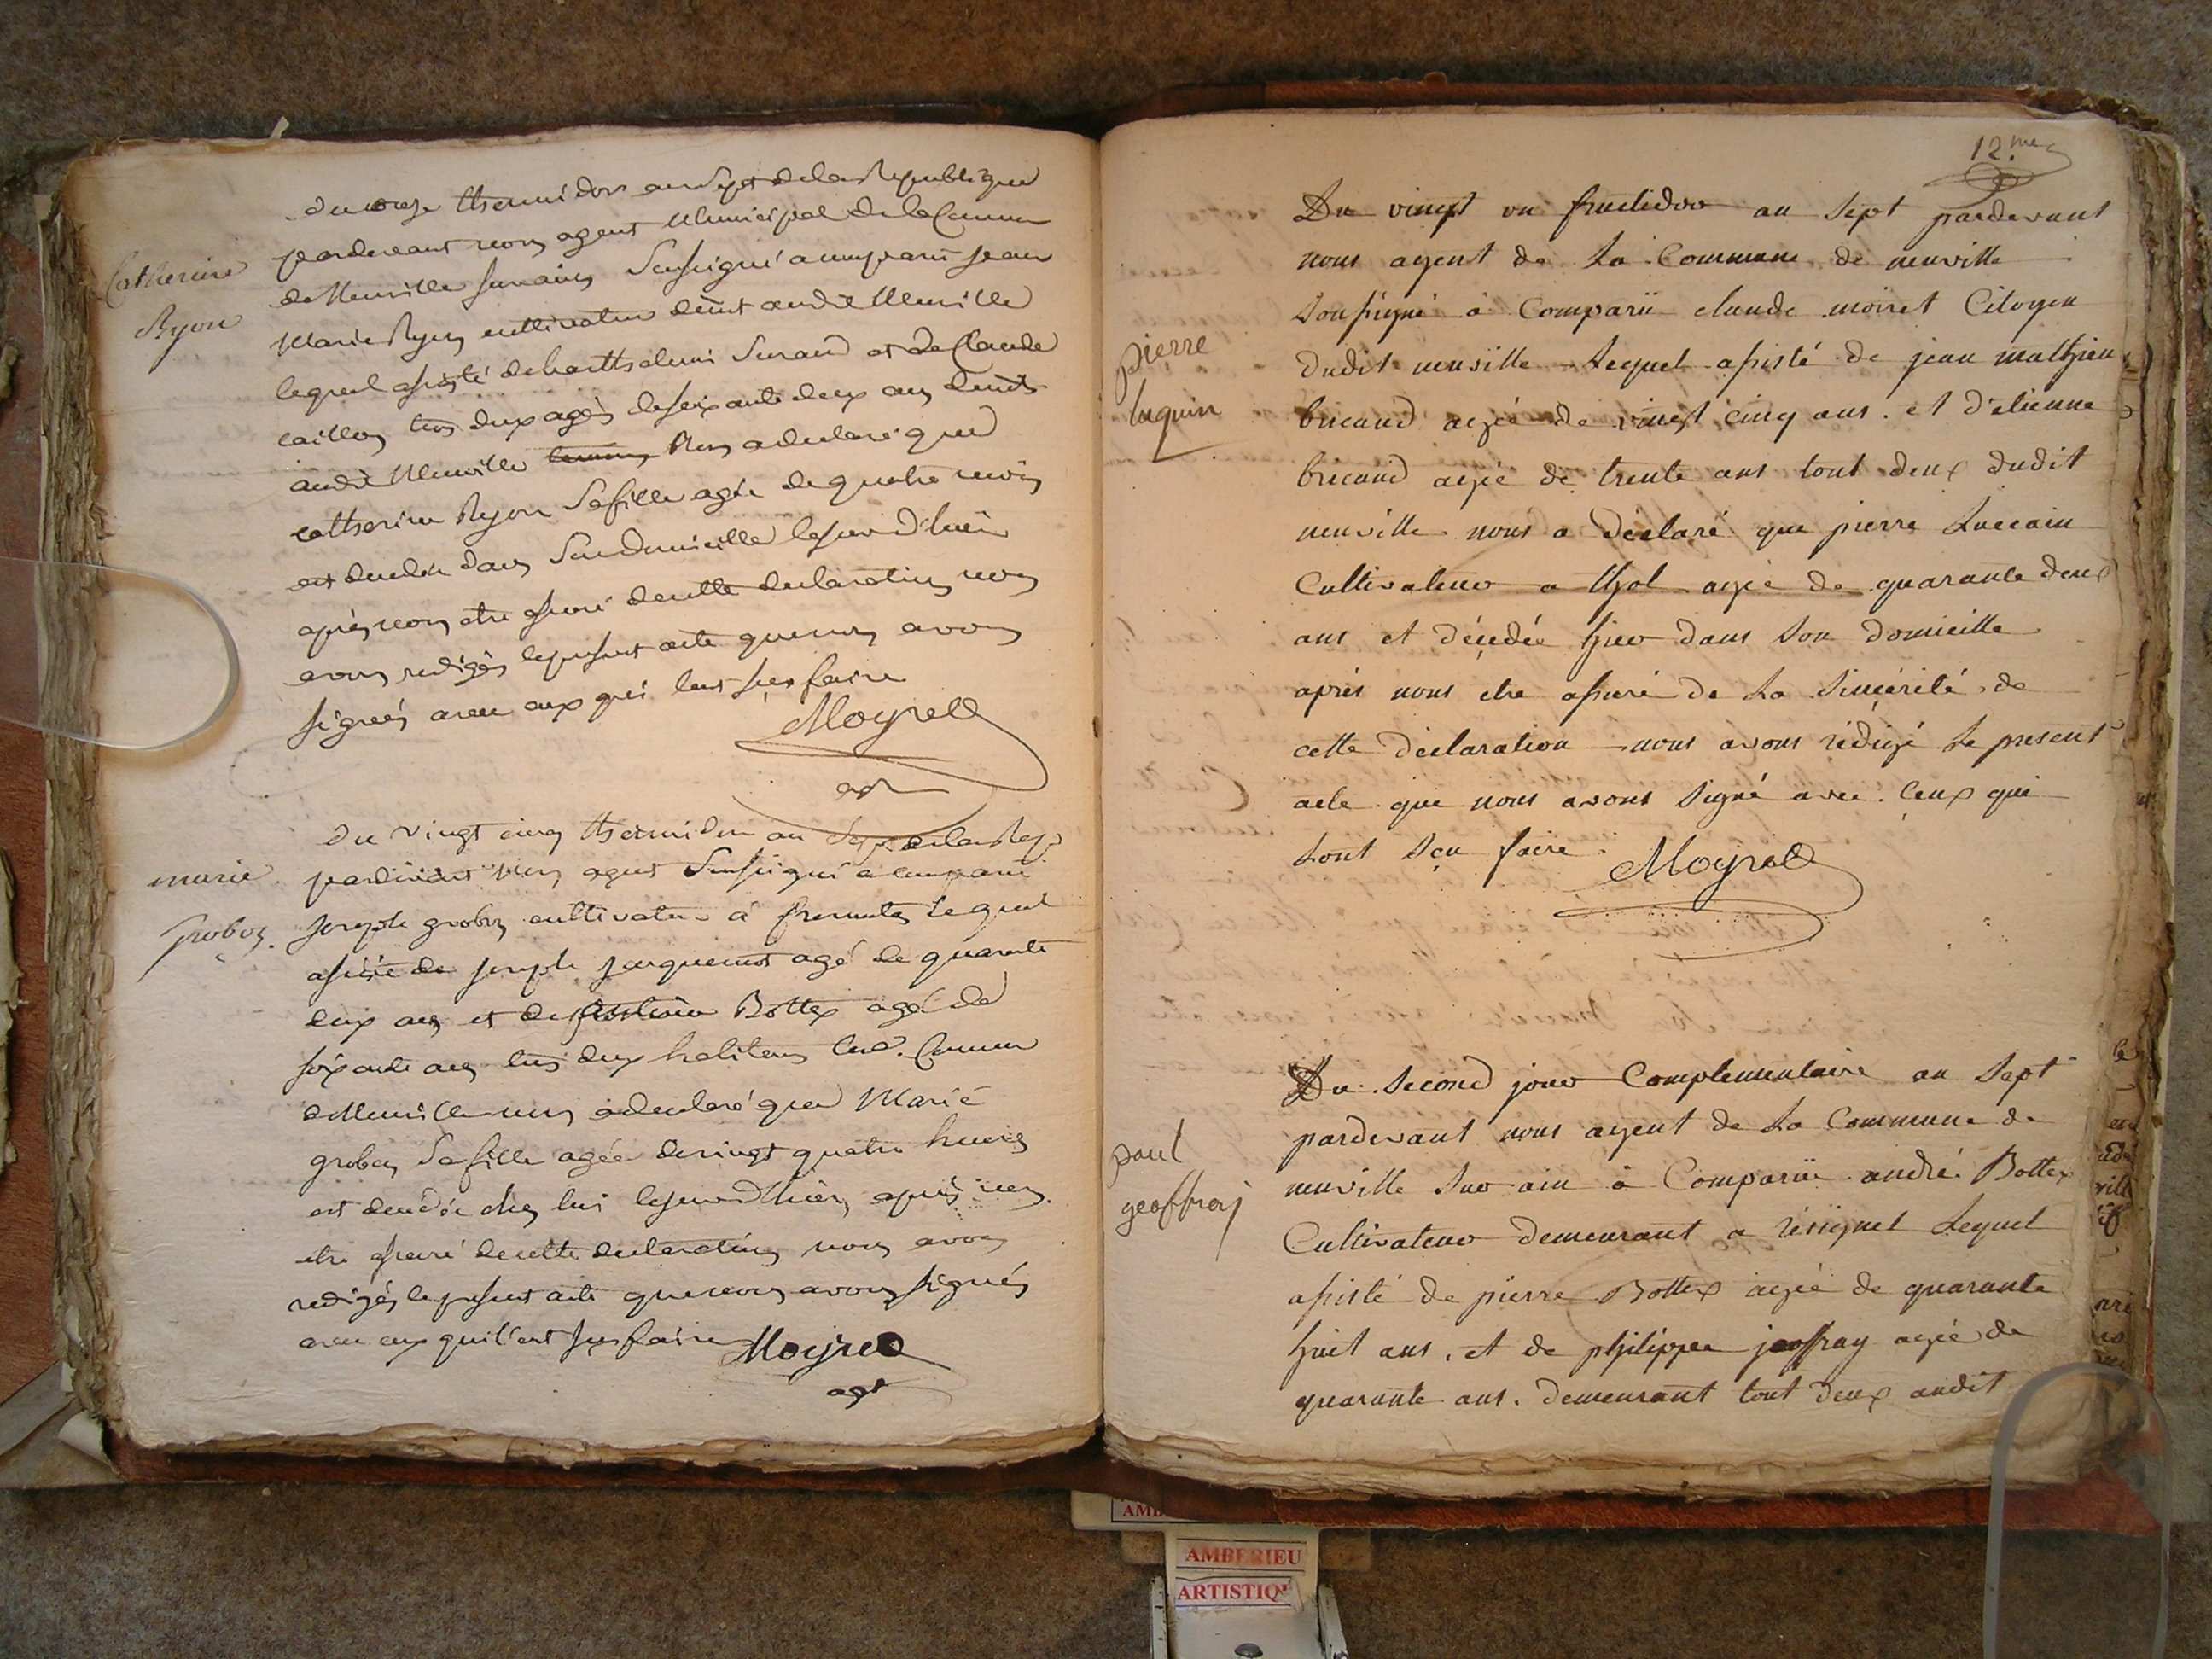 Catherine
Ryon
du onze thermidor an sept de la Republique
pardevant nous agent Municipal de la Commune
de Neuville sur ain Soussigné a comparu jean
Marie Ryon cultivateur audit Neuville
lequel assisté de Barthelemi Suraud et de Claude
tous deux agés de soixante deux ans dudit
Neuville nous a declaré que
catherine Ryon Sa fille agée de quatre mois
est decedée dans Son domicille le jourd'hui
après nous etre assuré de cette declaration nous
avons redigés le present acte que nous avons
signés avec eux qui l'ont sus faire
Moyret
agt
marie
grobon
du vingt cinq thermidor an Sept de la Rep.
pardevant nous agent Soussigné a comparu
joseph grobon cultivateur à fromente lequel
assisté de joseph jacquemet agé de quarante
deux ans et de Bottex agé de
soixante ans tous deux habitans Commune
de Neuville nous a declaré que Marie
grobon Sa fille agée de vingt quatre heures
est decedée chez lui le jourd'hier, après nous
etre assuré de cette declaration nous avons
redigés le present acte que nous avons signés
avec eux qui l'ont sus faire Moyret
agt
12.me
pierre
luquin
Du vingt un fructidor an Sept pardevant
nous agent de La Commune de neuville
Soussigné à Comparu claude moiret Citoyen
dudit neuville Lequel assisté de jean mathieu
bricand agée de vingt cinq ans. et d'etienne
bricand agée de trente ans tout deux dudit
neuville nous a déclaré que pierre Luccain
Cultivateur a thol agée de quarante deux
ans et décédée hier dans Son domicille
après nous etre assuré de La Sincérité de
cette déclaration nous avons rédigé Le present
acte que nous avons Signé avec Ceux qui
Lont Sçu faire.
Moyret
paul
geoffroj
Du Second jour Complementaire an Sept
pardevant nous agent de La Commune de
neuville Sur ain à Comparu andré Bottex
Cultivateur demeurant a résignel Lequel
assisté de pierre Bottex agée de quarante
huit ans, et de philippe jeoffray agée de
quarante ans. demeurant tout deux audit
AMBERIEU
ARTISTIQ